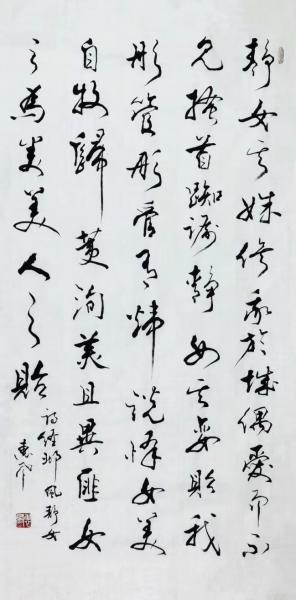 静女其姝俟我於城隅愛而不
見搔首踟躕静女其孌貽我
彤管彤管有煒説懌女美
自牧歸荑洵美且異匪女
之為美美人之貽
詩經邶風静女